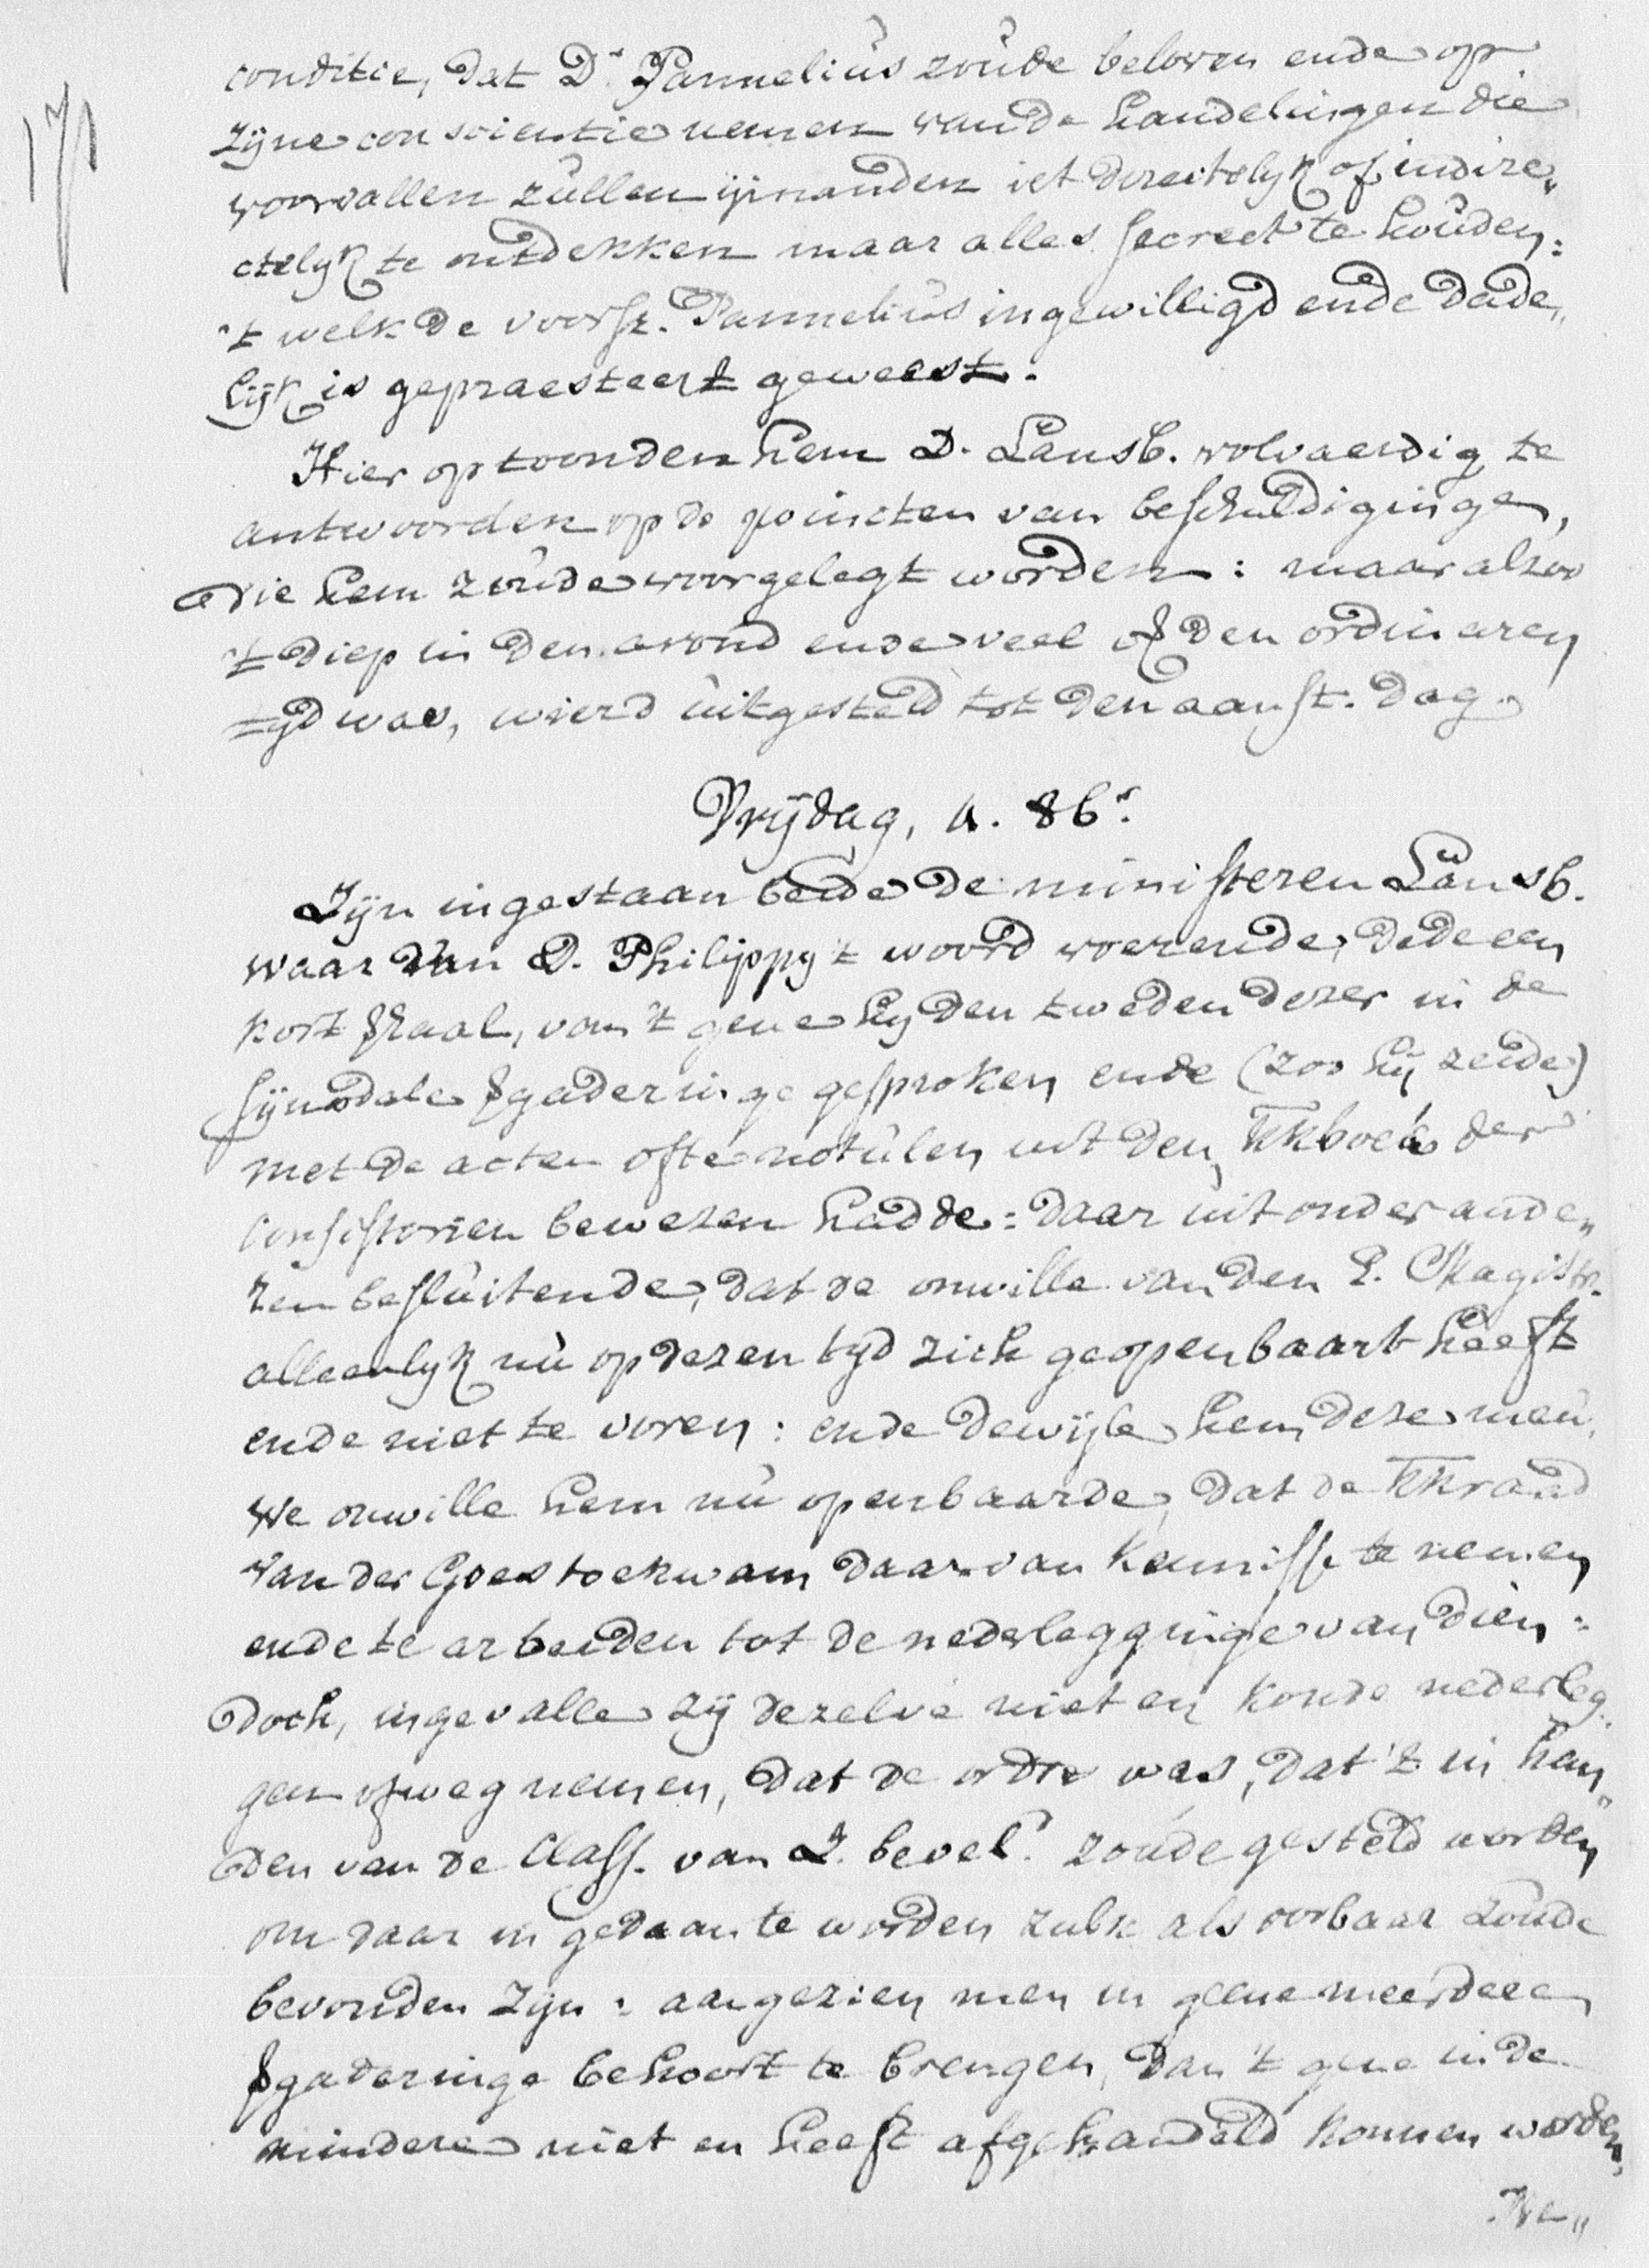 171
conditie, dat Dr. Pannelius zoude beloven ende op
zijne conscientie nemen van de handelingen die
voorvallen zullen ijmanden iet directelijk of indire„
ctelijk te ontdekken maar alles secreet te houden:
't welk de voorsz. Pannelius ingewilligd ende dade„
lijk is gepraesteert geweest.
Hier op toonden hem D. Lansb. volvaerdig te
antwoorden op de poincten van beschuldigingen,
die hem zoude voorgelegt worden: maar alzoo
't diep in den avond ende veel den ordinaren
tijd was, wierd uitgesteld tot den aanst. dag.
Vrijdag, 4. 8br.
Zijn ingestaan beide de ministeren Lansb.
waar van D. Philippy 't woord voerende, dede een
kort vhaal, van 't gene hy den tweden dezer in de
synodale vgaderinge gesproken ende (zoo hij zeide)
met de acten ofte notulen uit den kkboek der
consistorien bewezen hadde: daar uit onder ande„
ren besluitende, dat de onwille van den E. Magistr.
alleenlijk nu op dezen tijd zich geopenbaart heeft
ende niet te voren: ende dewijle hem deze nieu„
we onwille hem nu openbaarde, dat de kkraad
van der Goes toekwam daar van kennisse te nemen
ende te arbeiden tot de nederlegginge van dien:
doch, ingevalle zij dezelve niet en konde nederleg„
gen of weg nemen, dat de ordre was, dat 't in han„
den van de Class. van Z. bevel. zoude gesteld worden
om daar in gedaan te worden zulk als oorbaar zoude
bevonden zijn: aangezien men in geene meerdere
vgaderinge behoort te brengen, dan 't gene in de
mindere niet en heeft afgehandeld konnen worden,
We„